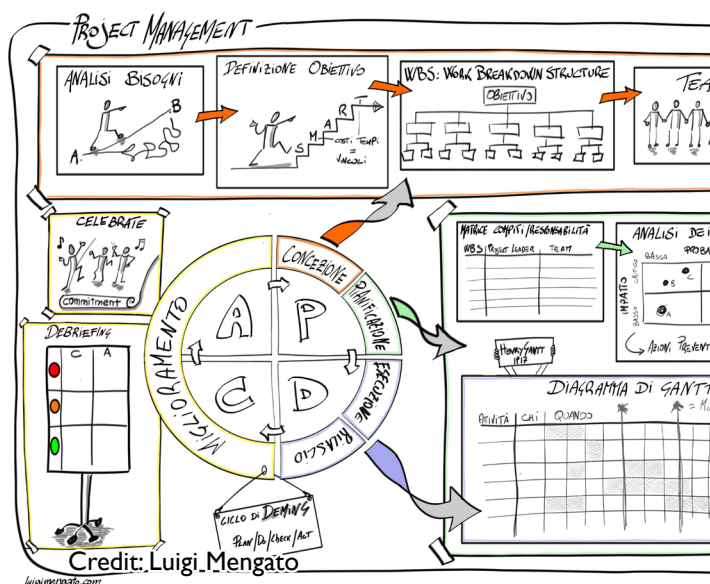 PROJECT MANAGEMENT
ANALISI BISOGNI
A
B
DEFINIZIONE OBIETTIVO
S M A R T
COSTI TEMPI
=
VINCOLI
WBS: WORK BREAKDOWN STRUCTURE
OBIETTIVO
TEA
CELEBRATE
Commitment
DEBRIEFING
C A
CONCEZIONE
PIANIFICAZIONE
ESECUZIONE
RILASCIO
MIGLIORAMENTO
A P
C D
CICLO DI DEMING
PLAN/DO/CHECK/ACT
MATRICE COMPITI/RESPONSABILITÀ
WBS PROJECT LEADER TEAM
ANALISI DEI
PROBA
BASSA
IMPATTO
CRITICO
BASSO
B
C
A
AZIONI PREVENT
HENRY GANTT
1917
DIAGRAMMA DI GANTT
= MI
ATTIVITÀ CHI QUANDO
Credit: Luigi Mengato
luigimengato.com